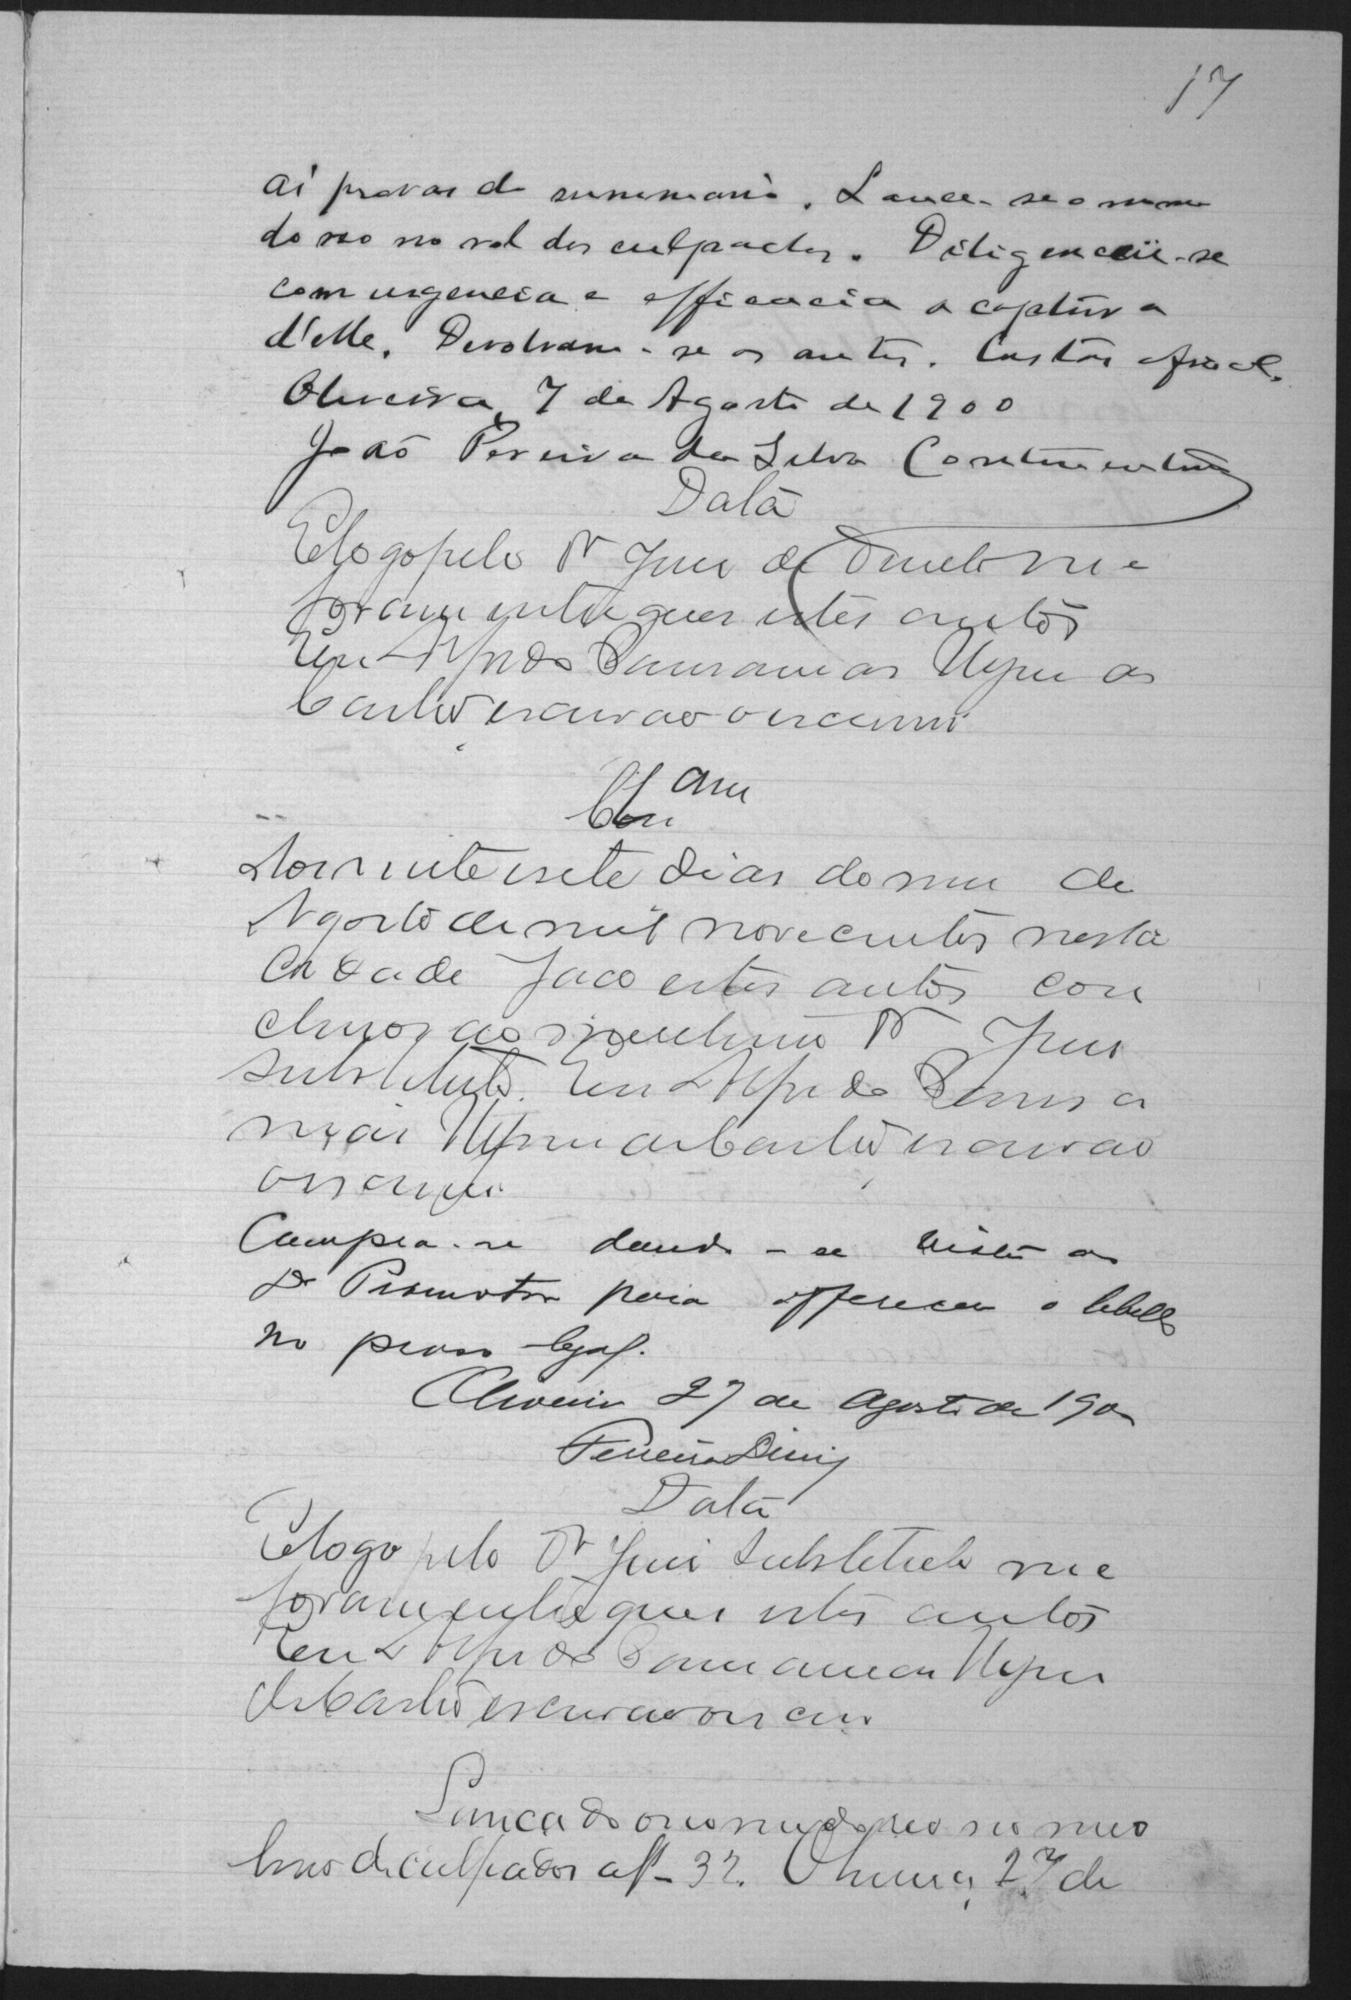 17
as provas do summario. Lance-se o nome
do reo no rol dos culpados. Diligencie-se
com urgencia e efficacia a captura
d'elle. Devolvam-se os autos. Custas afinal.
Oliveira, 7 de Agosto de 1900
João Pereira da Silva Continentino
Data
E logo pelo Dr Juiz de Direito me
foram entregues estes autos
Eu Alfredo Paranaias Nepu as
Castro escrivão o escrevi
Clsam
Aos vinte e sete dias do mez de
Agosto de mil novecentos nesta
Cidade faço estes autos con
clusos ao meretissimo Dr Juiz
substituto. Eu Alfredo
de Castro escrivão
o escrevi.
Cumpra-se dando-se vista ao
Dr Promotor para offerecer o libello
no praso legal.
Oliveira 27 de Agosto de 1900
Pereira Diniz
Data
E logo pelo Dr Juiz Substituto me
foram entregues estes autos
Eu Alfredo
de Castro escrivão o escrevi
Lançado o nome do reo no meo
livro de culpados a fl- 32. Oliveira, 27 de